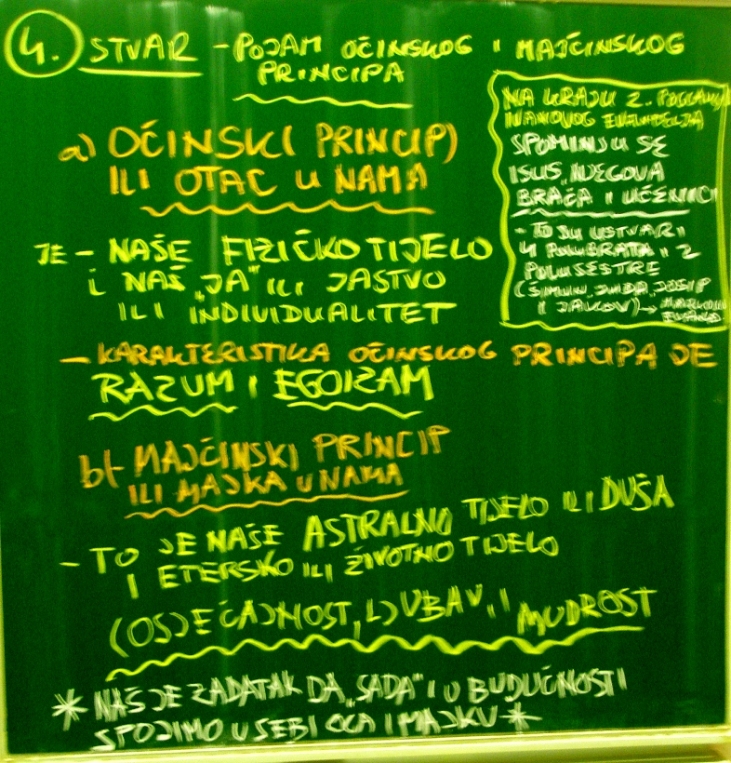 4. STVAR - POJAM OČINSKOG I MAJČINSKOG
PRINCIPA
a) OČINSKI PRINCIP)
ILI OTAC U NAMA
JE - NAŠE FIZIČKO TIJELO
I NAŠ „JA" ILI JASTVO
ILI INDIVIDUALITET
- KARAKTERISTIKA OČINSKOG PRINCIPA JE
RAZUM I EGOIZAM
NA KRAJU 2. POGLAVLJA
IVANOVOG EVANĐELJA
SPOMINJU SE
ISUS, NJEGOVA
BRAĆA I UČENICI
- TO SU USTVARI
4 POLUBRATA I 2
POLUSESTRE
(ŠIMUN, JUDA, JOSIP
I JAKOV) →
b) MAJČINSKI PRINCIP
ILI MAJKA U NAMA
- TO JE NAŠE ASTRALNO TIJELO ILI DUŠA
I ETERSKO ILI ŽIVOTNO TIJELO
(OSJEĆAJNOST, LJUBAV, I MUDROST
* NAŠ JE ZADATAK DA „SADA" I U BUDUĆNOSTI
SPOJIMO U SEBI OCA I MAJKU *